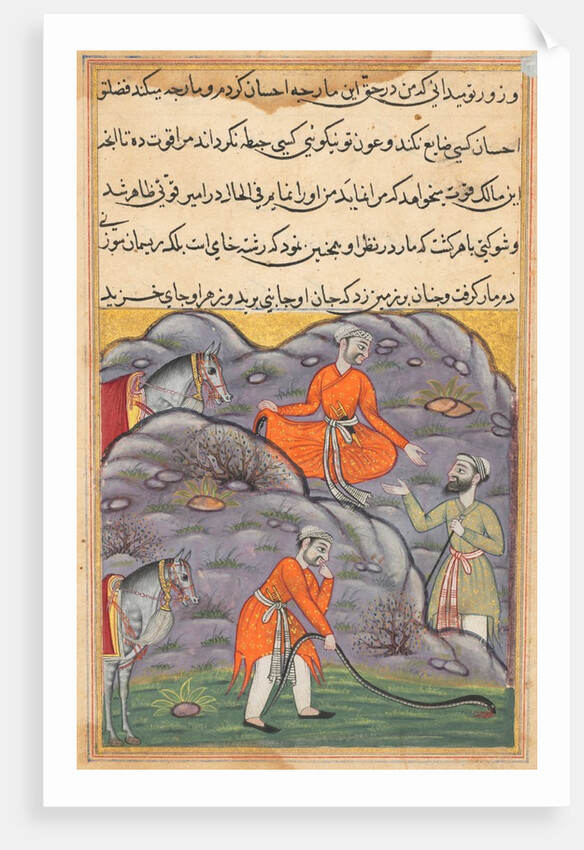 و زور تو میدانی که من در حق این مار چه احسان کردم و مار چه میکند فضل تو
احسان کسی ضایع نکند و عون تو نیکوئی کسی حبطه نگرداند مرا قوت ده تا آنچه
این مالک قوت میخواهد که مرا نماید من او را نمایم فی الحال در امیر قوتی ظاهر شد
و شوکتی باهر گشت که مار در نظر او همچنین نمود که رشته خامی است بلکه ریسمان سوزنی
دم مار گرفت و چنان بر زمین زد که جان او جانبی پرید و زهر او جای خزید